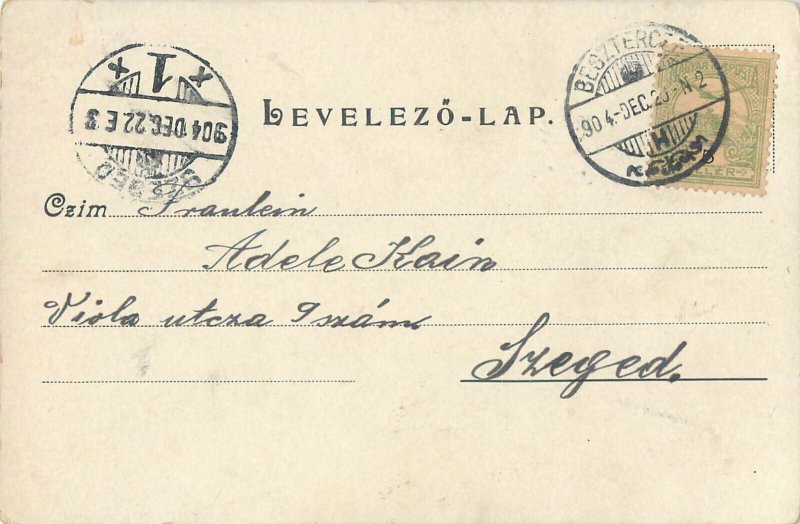 SZEGED
904 DEC. 22 E 3
1
BESZTERCZE
904-DEC. 20-N 2
H
LEVELEZŐ-LAP.
Czim Fraulein
Adele Kain
Viola utcza 9 szám
Szeged.